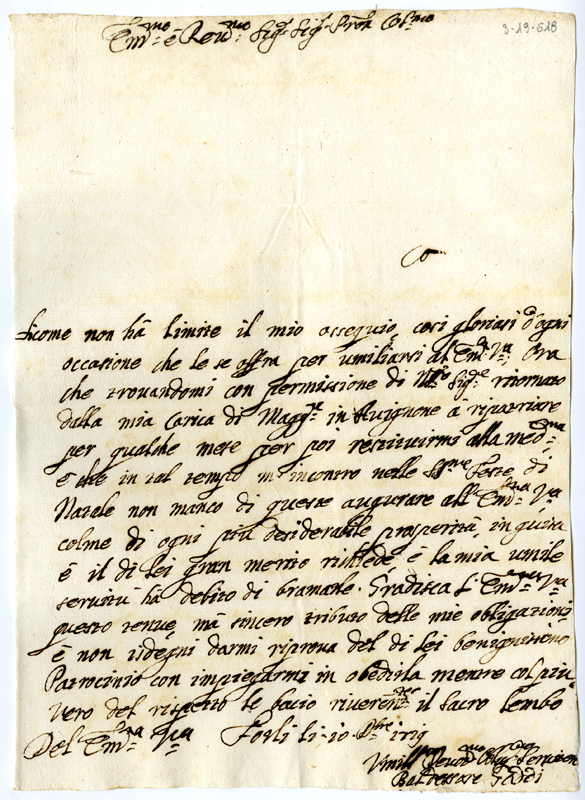 3-19-618
Em.mo e Rev.mo Sig.r Sig.r Pron Col.mo
Siccome non hà limite il mio ossequio, così gloriasi d'ogni
occasione che le se offra per umiliarsi al Em.a Va, Ora
che trovandomi con permissione di N.ro Sig.re ritornato
dalla mia Carica di Magg.re in Avignone à ripatriare
per qualche mese per poi restituirmi alla med.ma
è che in tal tempo m'incontro nelle SS.me Feste di
Natale non manco di queste augurare all' Em.za Va
colme di ogni più desiderabile prosperità, in guisa
è il di Lei gran merito richiede, è la mia umile
servitù hà debito di bramarle. Gradisca L'Em. Va
questo tenue, mà sincero tributo delle mie obligationi
è non isdegni darmi riprova del di lei benignissimo
Patrocinio con impiegarmi in obedirla mentre col più
vero del rispetto le bacio riveren.te il sacro lembo
Del Em.za Va Forlì li: 10
Umill. Devo.mo Servitore
Baldessare